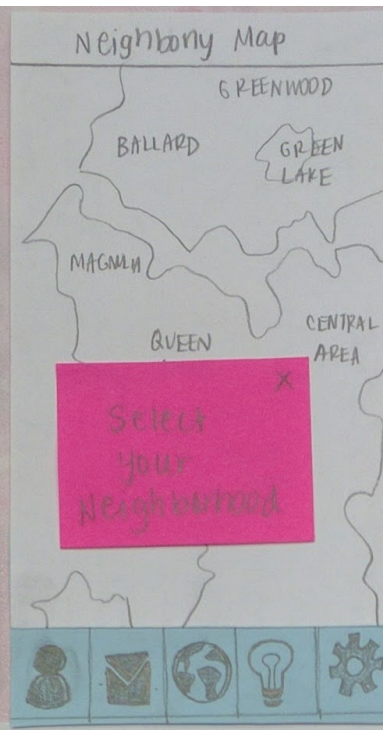 Neighbony Map
GREENWOOD
BALLARD
GREEN
LAKE
MAGNOLIA
QUEEN
CENTRAL
AREA
X
Select
Your
Neighborhood